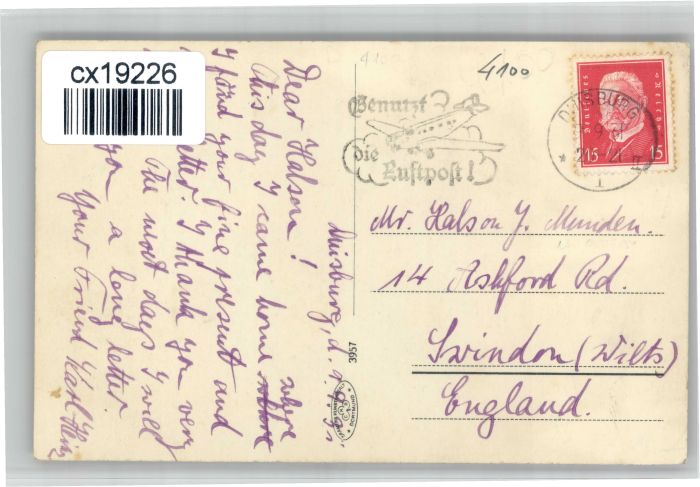 cx19226
4100
Benutzt
die
Luftpost!
DUISBURG
Deutsches Reich
15
15
Duisburg, d.
Dear Halson!
this day I came home where
I find your fine present and
letter. I thank you very
The next days I will
you a long letter
Your Friend Karl Heinz
3957
DORTMUND
Mr. Halson J. Munden.
14 Ashford Rd.
Swindon (Wilts)
England.